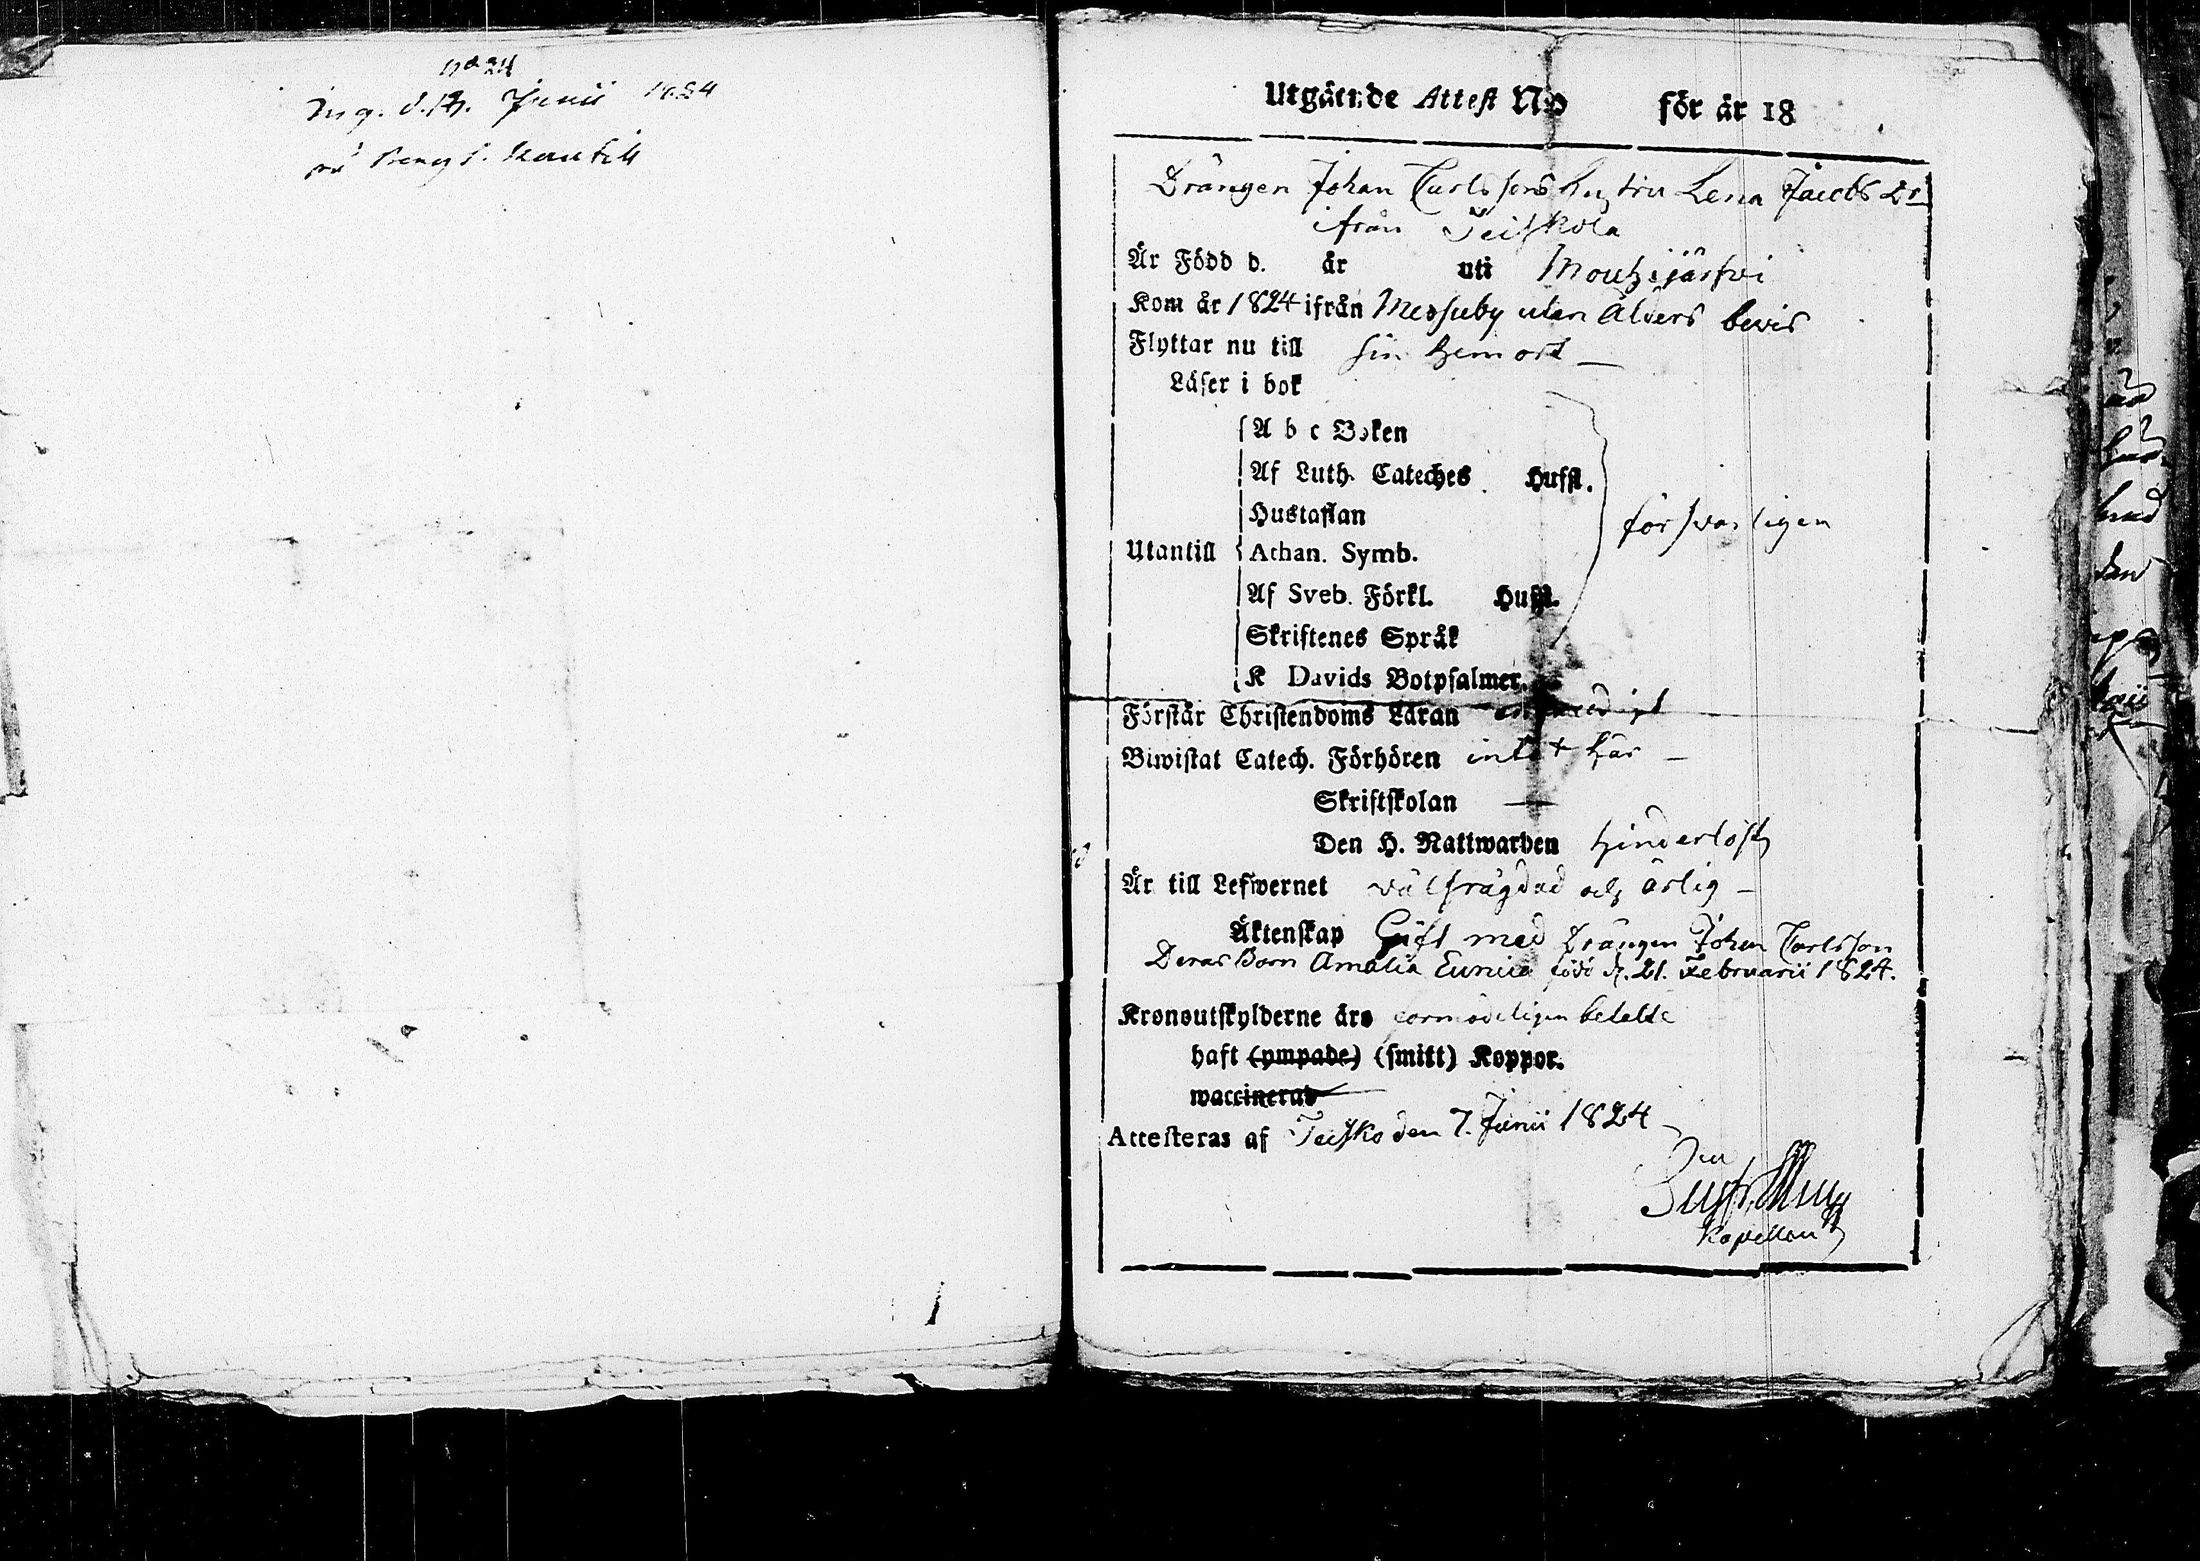 No 24
Ing. d. Junii 1824
Utgående Attest No för år 18
Drängen Johan Carlssons hustru Lena Jacobs Dr
ifrån Teiskola
Är Född d. år uti Mouhijärfvi
Kom år 1824 ifrån Messuby utan Ålders bevis
Flyttar nu till sin hemort —
Läser i bok
A b c Boken
Af Luth. Cateches Hufst.
Hustaflan
försvarligen
Utantill Athan. Symb.
Af Sveb. Förkl. Hufst.
Skriftenes Språk
K Davids Botpsalmer.
Förstår Christendoms Läran
Biwistat Catech. Förhören intet här —
Skriftskolan —
Den H. Nattwarden hinderlöst
Är till Lefwernet välfrägdad och ärlig —
Äktenskap Gift med Drängen Johan Carlsson
Deras Barn Amalia Eunica född d. 21. Februarii 1824.
Kronoutskylderne äro förmodeligen betalte
haft (ympade) (smitt) Koppor.
waccinerad
Attesteras af Teisko den 7. Junii 1824
Kapellan